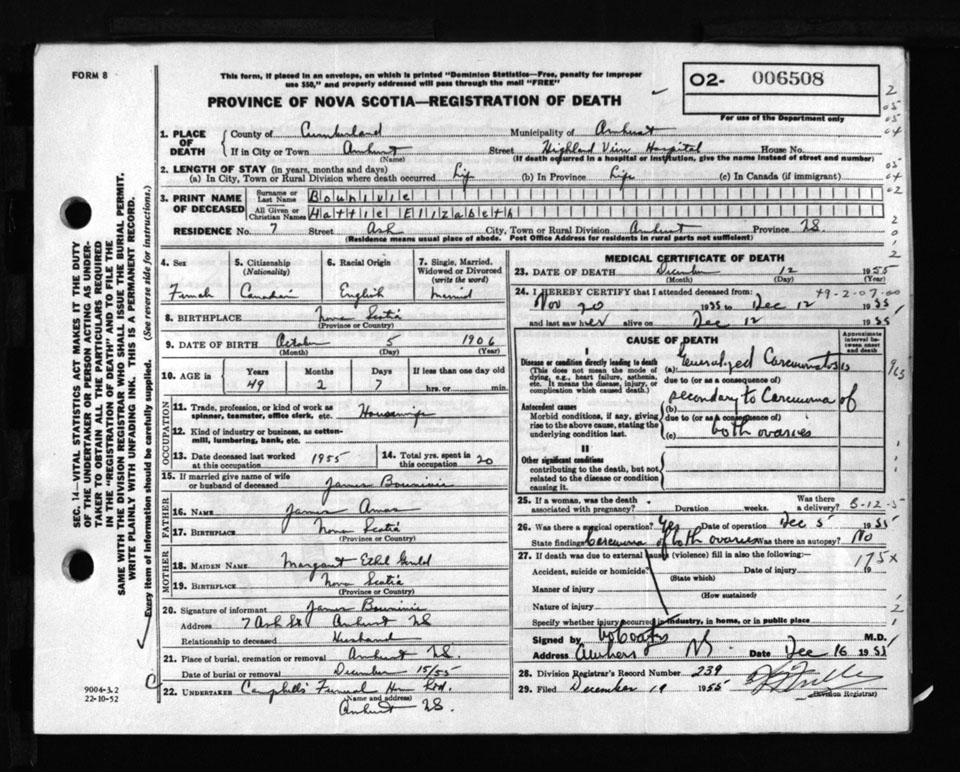 FORM 8
This form, if placed in an envelope, on which is printed "Dominion Statistics—Free, penalty for improper
use $50," and properly addressed will pass through the mail "FREE"
O2- 006508
For use of the Department only
PROVINCE OF NOVA SCOTIA—REGISTRATION OF DEATH
1. PLACE OF DEATH County of Cumberland Municipality of Amherst
If in City or Town Amherst Street Highland View Hospital House No.
(Name) (If death occurred in a hospital or institution, give the name instead of street and number)
2. LENGTH OF STAY (in years, months and days)
(a) In City, Town or Rural Division where death occurred Life (b) In Province Life (c) In Canada (if immigrant)
3. PRINT NAME OF DECEASED Surname or Last Name Bounivie
All Given or Christian Names Hattie Elizabeth
RESIDENCE No. 7 Street Ash City, Town or Rural Division Amherst Province NS
(Residence means usual place of abode. Post Office Address for residents in rural parts not sufficient)
4. Sex 5. Citizenship (Nationality) 6. Racial Origin 7. Single, Married, Widowed or Divorced (write the word)
Female Canadian English Married
8. BIRTHPLACE Nova Scotia
(Province or Country)
9. DATE OF BIRTH October 5 1906
(Month) (Day) (Year)
10. AGE in Years Months Days If less than one day old
49 2 7 hrs. or min.
OCCUPATION
11. Trade, profession, or kind of work as spinner, teamster, office clerk, etc. Housewife
12. Kind of industry or business, as cotton-mill, lumbering, bank, etc.
13. Date deceased last worked at this occupation 1955 14. Total yrs. spent in this occupation 20
15. If married give name of wife or husband of deceased James Bounivie
FATHER
16. Name James Amos
17. BIRTHPLACE Nova Scotia
(Province or Country)
MOTHER
18. MAIDEN NAME Margaret Ethel
19. BIRTHPLACE Nova Scotia
(Province or Country)
20. Signature of informant James Bounivie
Address 7 Ash St. Amherst NS
Relationship to deceased Husband
21. Place of burial, cremation or removal Amherst NS.
Date of burial or removal December 15/55
22. UNDERTAKER Campbells Funeral Home Ltd.
(Name and address)
Amherst NS.
MEDICAL CERTIFICATE OF DEATH
23. DATE OF DEATH December 12 1955
(Month) (Day) (Year)
24. I HEREBY CERTIFY that I attended deceased from: 49-2-07-00
Nov 20 1955 to Dec 12 1955
and last saw her alive on Dec 12 1955
CAUSE OF DEATH
Approximate interval between onset and death
I
Disease or condition directly leading to death (a) Generalized Carcinomatosis
(This does not mean the mode of dying, e.g., heart failure, asthenia, etc. It means the disease, injury, or complication which caused death.)
due to (or as a consequence of)
secondary to Carcinoma of
Antecedent causes (b)
Morbid conditions, if any, giving rise to the above cause, stating the underlying condition last.
due to (or as a consequence of)
(c) both ovaries
II
Other significant conditions contributing to the death, but not related to the disease or condition causing it.
25. If a woman, was the death associated with pregnancy? Duration weeks. Was there a delivery? 5-12-5
26. Was there a surgical operation? Yes Date of operation Dec 5 1955
State findings Carcinoma of both ovaries Was there an autopsy? No
27. If death was due to external causes (violence) fill in also the following:—
Accident, suicide or homicide? Date of injury 19
(State which) 175x
Manner of injury
(How sustained)
Nature of injury
Specify whether injury occurred in industry, in home, or in public place
Signed by M.D.
Address Amherst NS. Date Dec 16 1955
28. Division Registrar's Record Number 239
29. Filed December 19 1955
(Division Registrar)
SEC. 14—VITAL STATISTICS ACT MAKES IT THE DUTY
OF THE UNDERTAKER OR PERSON ACTING AS UNDER-
TAKER TO OBTAIN ALL THE PARTICULARS REQUIRED
IN THE "REGISTRATION OF DEATH" AND TO FILE THE
SAME WITH THE DIVISION REGISTRAR WHO SHALL ISSUE THE BURIAL PERMIT.
WRITE PLAINLY WITH UNFADING INK. THIS IS A PERMANENT RECORD.
Every item of information should be carefully supplied. (See reverse side for instructions.)
9004-3.2
22-10-52